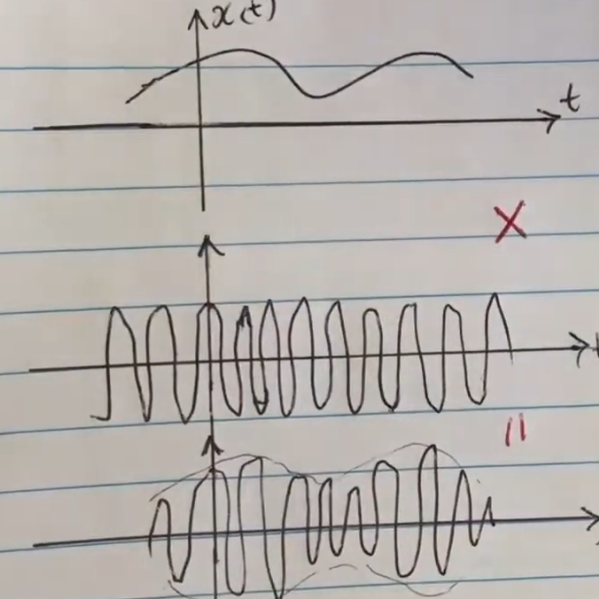 x(t)
t
×
=